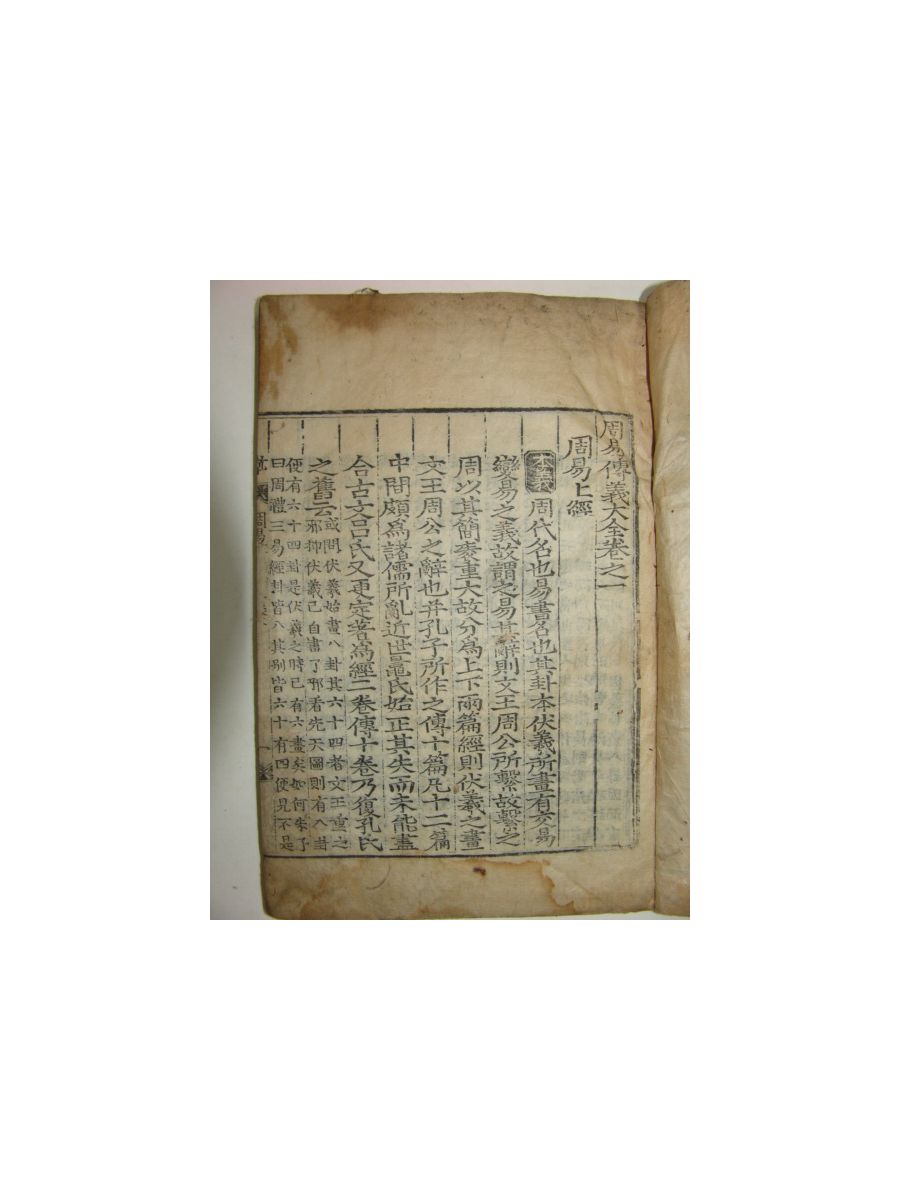 周易傳義大全卷之一
周易上經
本義 周代名也易書名也其卦本伏羲所畫有交易
變易之義故謂之易其辭則文王周公所繫故繫之
周以其簡袠重大故分爲上下兩篇經則伏羲之畫
文王周公之辭也幷孔子所作之傳十篇凡十二篇
中間頗爲諸儒所亂近世鼂氏始正其失而未能盡
合古文呂氏又更定著爲經二卷傳十卷乃復孔氏
之舊云
或問伏羲始畫八卦其六十四者文王重之
邪抑伏羲已自畫了邪看先天圖則有八卦
便有六十四卦是伏羲之時已有六畫矣如何朱子
曰周禮三易經卦皆八其別皆六十有四便見不是
周易